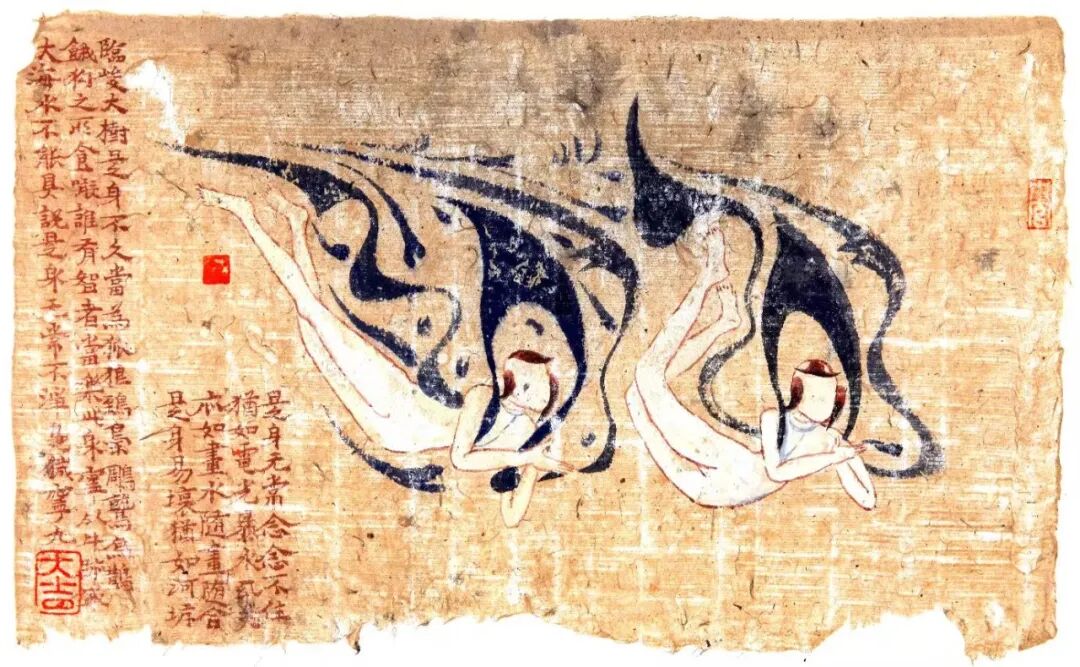 是身无常念念不住
猶如電光暴水
亦如畫水隨畫随合
是身易壞猶如河
臨峻大樹是身不久當為狐狼鵄梟鵰鷲烏鵲
餓狗之所食噉誰有智者當樂此身寧以牛跡盛
大海水不能具說是身无常不